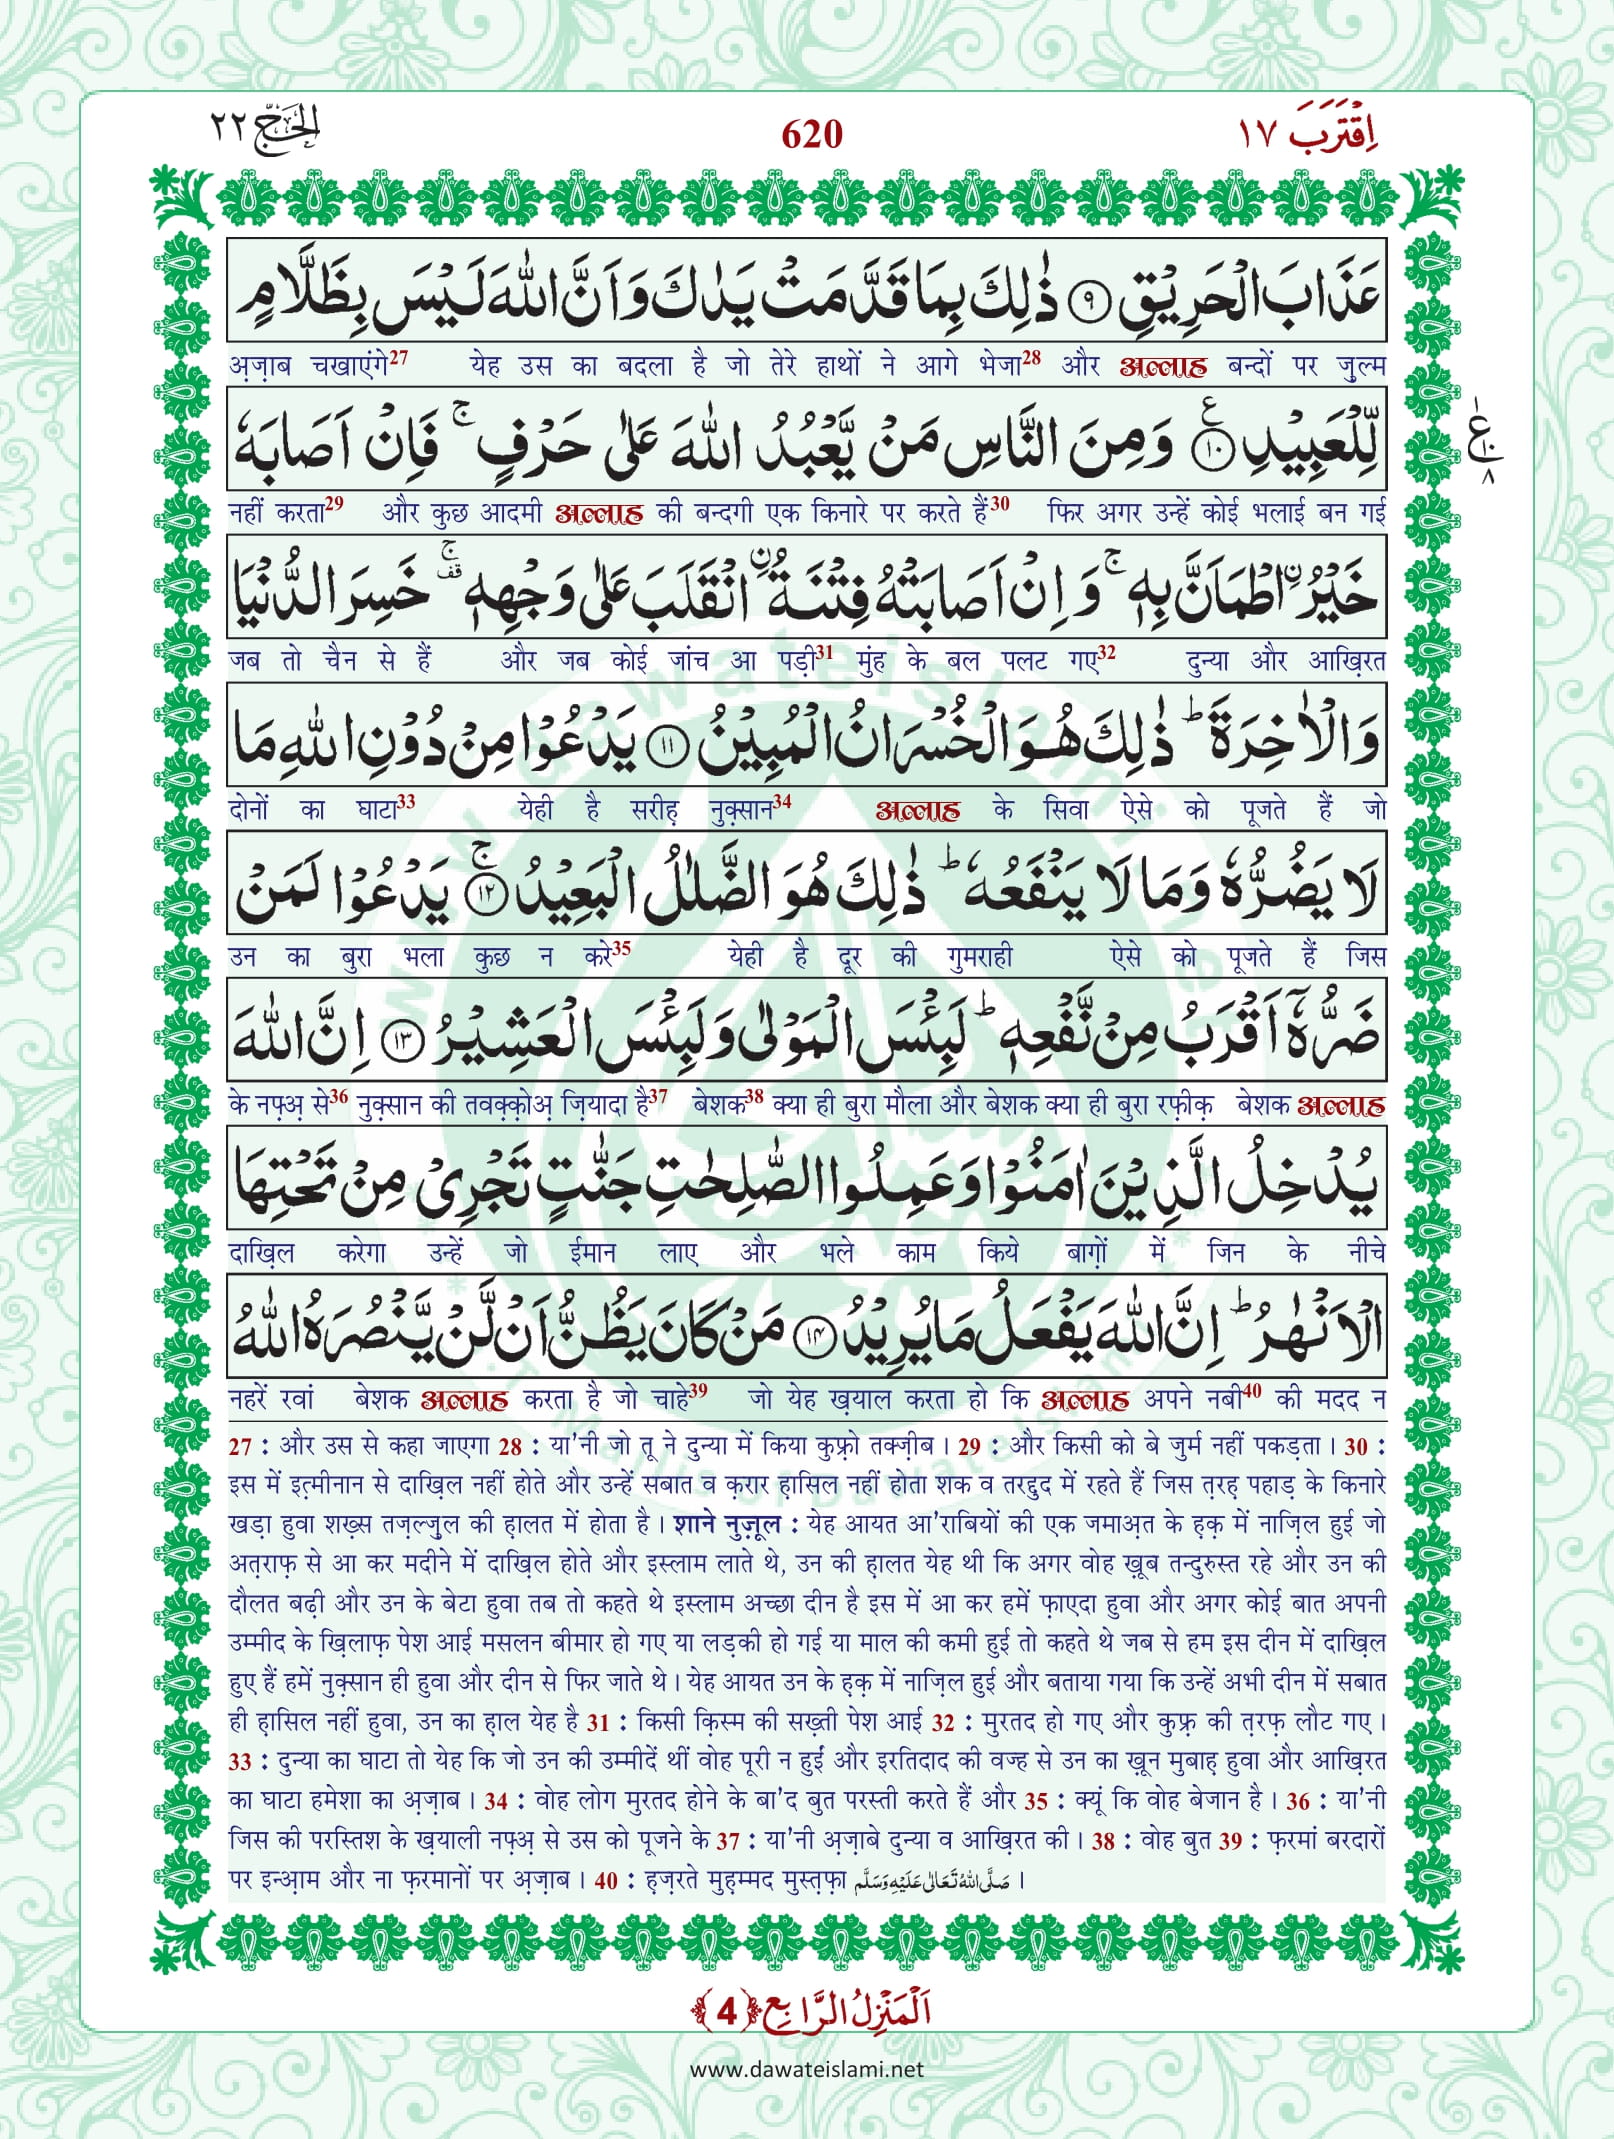 اِقْتَرَبَ ١٧
620
الحَجّ ٢٢
عَذَابَ الْحَرِيْقِ ﴿۹﴾ ذٰلِكَ بِمَا قَدَّمَتْ يَدٰكَ وَاَنَّ اللّٰهَ لَيْسَ بِظَلَّامٍ
अ़ज़ाब चखाएंगे27 येह उस का बदला है जो तेरे हाथों ने आगे भेजा28 और अल्लाह बन्दों पर ज़ुल्म
لِّلْعَبِيْدِ ﴿۱۰﴾ ع وَمِنَ النَّاسِ مَنْ يَّعْبُدُ اللّٰهَ عَلٰى حَرْفٍ ۚ فَاِنْ اَصَابَهٗ
ع ١٠ ٨
नहीं करता29 और कुछ आदमी अल्लाह की बन्दगी एक किनारे पर करते हैं30 फिर अगर उन्हें कोई भलाई बन गई
خَيْرُ ۨ اطْمَاَنَّ بِهٖ ۚ وَ اِنْ اَصَابَتْهُ فِتْنَةُ ۨ انْقَلَبَ عَلٰى وَجْهِهٖ ۚ قف خَسِرَ الدُّنْيَا
जब तो चैन से हैं और जब कोई जांच आ पड़ी31 मुंह के बल पलट गए32 दुन्या और आख़िरत
وَالْاٰخِرَةَ ؕ ذٰلِكَ هُوَ الْخُسْرَانُ الْمُبِيْنُ ﴿۱۱﴾ يَدْعُوْا مِنْ دُوْنِ اللّٰهِ مَا
दोनों का घाटा33 येही है सरीह़ नुक़्सान34 अल्लाह के सिवा ऐसे को पूजते हैं जो
لَا يَضُرُّهٗ وَمَا لَا يَنْفَعُهٗ ؕ ذٰلِكَ هُوَ الضَّلٰلُ الْبَعِيْدُ ﴿۱۲﴾ ۚ يَدْعُوْا لَمَنْ
उन का बुरा भला कुछ न करे35 येही है दूर की गुमराही ऐसे को पूजते हैं जिस
ضَرُّهٗۤ اَقْرَبُ مِنْ نَّفْعِهٖ ؕ لَبِئْسَ الْمَوْلٰى وَلَبِئْسَ الْعَشِيْرُ ﴿۱۳﴾ اِنَّ اللّٰهَ
के नफ़्अ़ से36 नुक़्सान की तवक़्क़ोअ़ ज़ियादा है37 बेशक38 क्या ही बुरा मौला और बेशक क्या ही बुरा रफ़ीक़ बेशक अल्लाह
يُدْخِلُ الَّذِيْنَ اٰمَنُوْا وَعَمِلُوا الصّٰلِحٰتِ جَنّٰتٍ تَجْرِيْ مِنْ تَحْتِهَا
दाख़िल करेगा उन्हें जो ईमान लाए और भले काम किये बाग़ों में जिन के नीचे
الْاَنْهٰرُ ؕ اِنَّ اللّٰهَ يَفْعَلُ مَا يُرِيْدُ ﴿۱۴﴾ مَنْ كَانَ يَظُنُّ اَنْ لَّنْ يَّنْصُرَهُ اللّٰهُ
नहरें रवां बेशक अल्लाह करता है जो चाहे39 जो येह ख़याल करता हो कि अल्लाह अपने नबी40 की मदद न
27 : और उस से कहा जाएगा 28 : या'नी जो तू ने दुन्या में किया कुफ़्रो तक्ज़ीब। 29 : और किसी को बे जुर्म नहीं पकड़ता। 30 :
इस में इत़्मीनान से दाख़िल नहीं होते और उन्हें सबात व क़रार ह़ासिल नहीं होता शक व तरद्दुद में रहते हैं जिस त़रह़ पहाड़ के किनारे
खड़ा हुवा शख़्स तज़ल्ज़ुल की ह़ालत में होता है। शाने नुज़ूल : येह आयत आ'राबियों की एक जमाअ़त के ह़क़ में नाज़िल हुई जो
अत़राफ़ से आ कर मदीने में दाख़िल होते और इस्लाम लाते थे, उन की ह़ालत येह थी कि अगर वोह ख़ूब तन्दुरुस्त रहे और उन की
दौलत बढ़ी और उन के बेटा हुवा तब तो कहते थे इस्लाम अच्छा दीन है इस में आ कर हमें फ़ाएदा हुवा और अगर कोई बात अपनी
उम्मीद के ख़िलाफ़ पेश आई मसलन बीमार हो गए या लड़की हो गई या माल की कमी हुई तो कहते थे जब से हम इस दीन में दाख़िल
हुए हैं हमें नुक़्सान ही हुवा और दीन से फिर जाते थे। येह आयत उन के ह़क़ में नाज़िल हुई और बताया गया कि उन्हें अभी दीन में सबात
ही ह़ासिल नहीं हुवा, उन का ह़ाल येह है 31 : किसी क़िस्म की सख़्ती पेश आई 32 : मुरतद हो गए और कुफ़्र की त़रफ़ लौट गए।
33 : दुन्या का घाटा तो येह कि जो उन की उम्मीदें थीं वोह पूरी न हुईं और इरतिदाद की वज्ह से उन का ख़ून मुबाह़ हुवा और आख़िरत
का घाटा हमेशा का अ़ज़ाब। 34 : वोह लोग मुरतद होने के बा'द बुत परस्ती करते हैं और 35 : क्यूं कि वोह बेजान है। 36 : या'नी
जिस की परस्तिश के ख़याली नफ़्अ़ से उस को पूजने के 37 : या'नी अ़ज़ाबे दुन्या व आख़िरत की। 38 : वोह बुत 39 : फ़रमां बरदारों
पर इन्अ़ाम और ना फ़रमानों पर अ़ज़ाब। 40 : ह़ज़रते मुह़म्मद मुस्त़फ़ा صَلَّى اللّٰهُ تَعَالٰى عَلَيْهِ وَسَلَّم।
اَلْمَنْزِلُ الرَّابِع ﴿4﴾
www.dawateislami.net